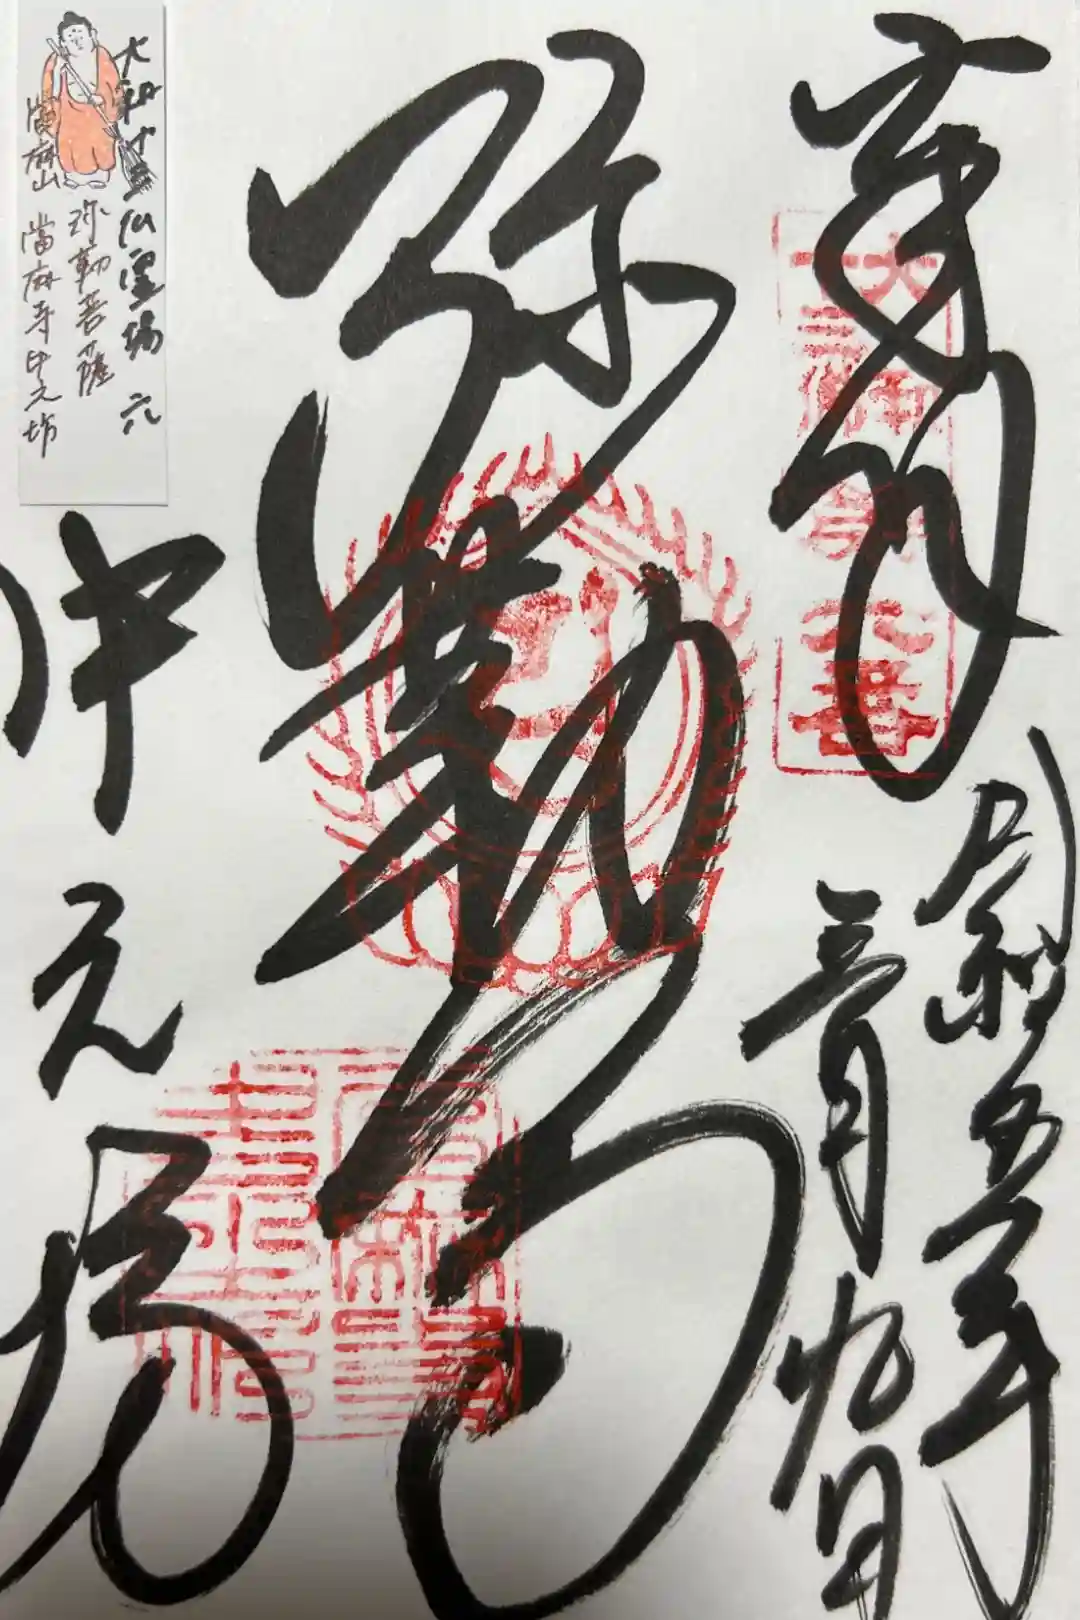 大和十三仏霊場 六
弥勒菩薩
當麻山 當麻寺中之坊
奉拝
大和十三佛第六番
令和五年
三月九日
弥勒
中之坊